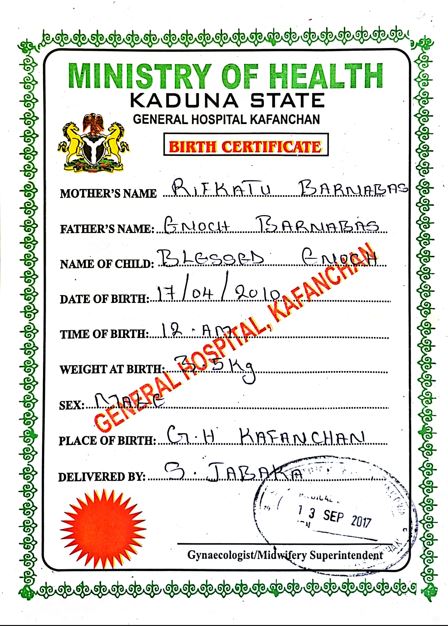 MINISTRY OF HEALTH
KADUNA STATE
GENERAL HOSPITAL KAFANCHAN
BIRTH CERTIFICATE
MOTHER'S NAME RIFKATU BARNABAS
FATHER'S NAME: ENOCH BARNABAS
NAME OF CHILD: BLESSED ENOCH
DATE OF BIRTH: 17/04/2010
TIME OF BIRTH: 12. AM
WEIGHT AT BIRTH: 3.5kg
SEX: MALE
GENERAL HOSPITAL, KAFANCHAN
PLACE OF BIRTH: G.H KAFANCHAN
DELIVERED BY: S. JABAKA
13 SEP 2017
Gynaecologist/Midwifery Superintendent